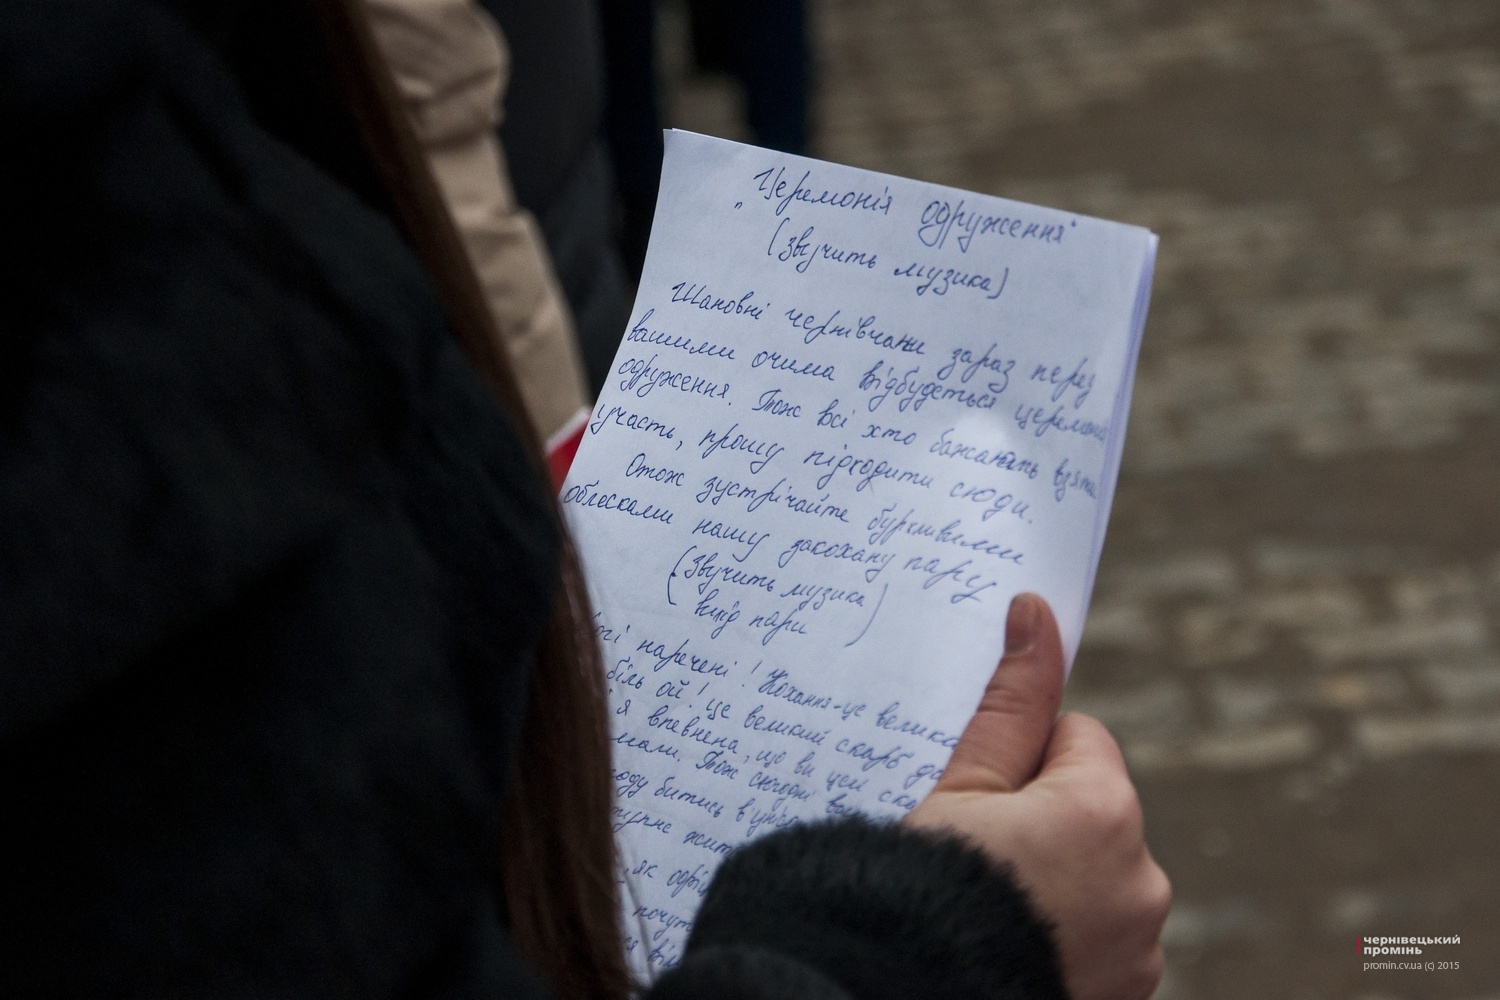 „Церемонія одруження"
(Звучить музика)
Шановні чернівчани зараз перед
вашими очима відбудеться церемонія
одруження. Тож всі хто бажають взяти
участь, прошу підходити сюди.
Отож зустрічайте бурхливими
облесками нашу закохану пару
(Звучить музика)
вихід пари
наречені! Кохання-це велика
біль ой! це великий скарб
я впевнена, що ви цей
мали. Тож сьогодні
битись в унісон
як
чернівецький
промінь
promin.cv.ua (c) 2015